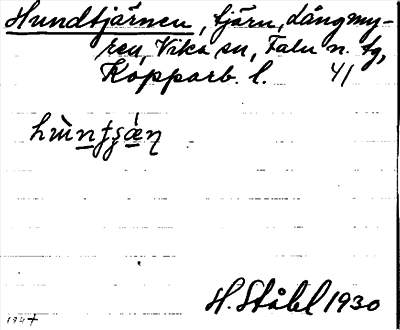 Hundtjärnen, tjärn, dångmy-
ren, Vika sn, Falu n. tg,
Kopparb. l. 41
H. Ståhl 1930